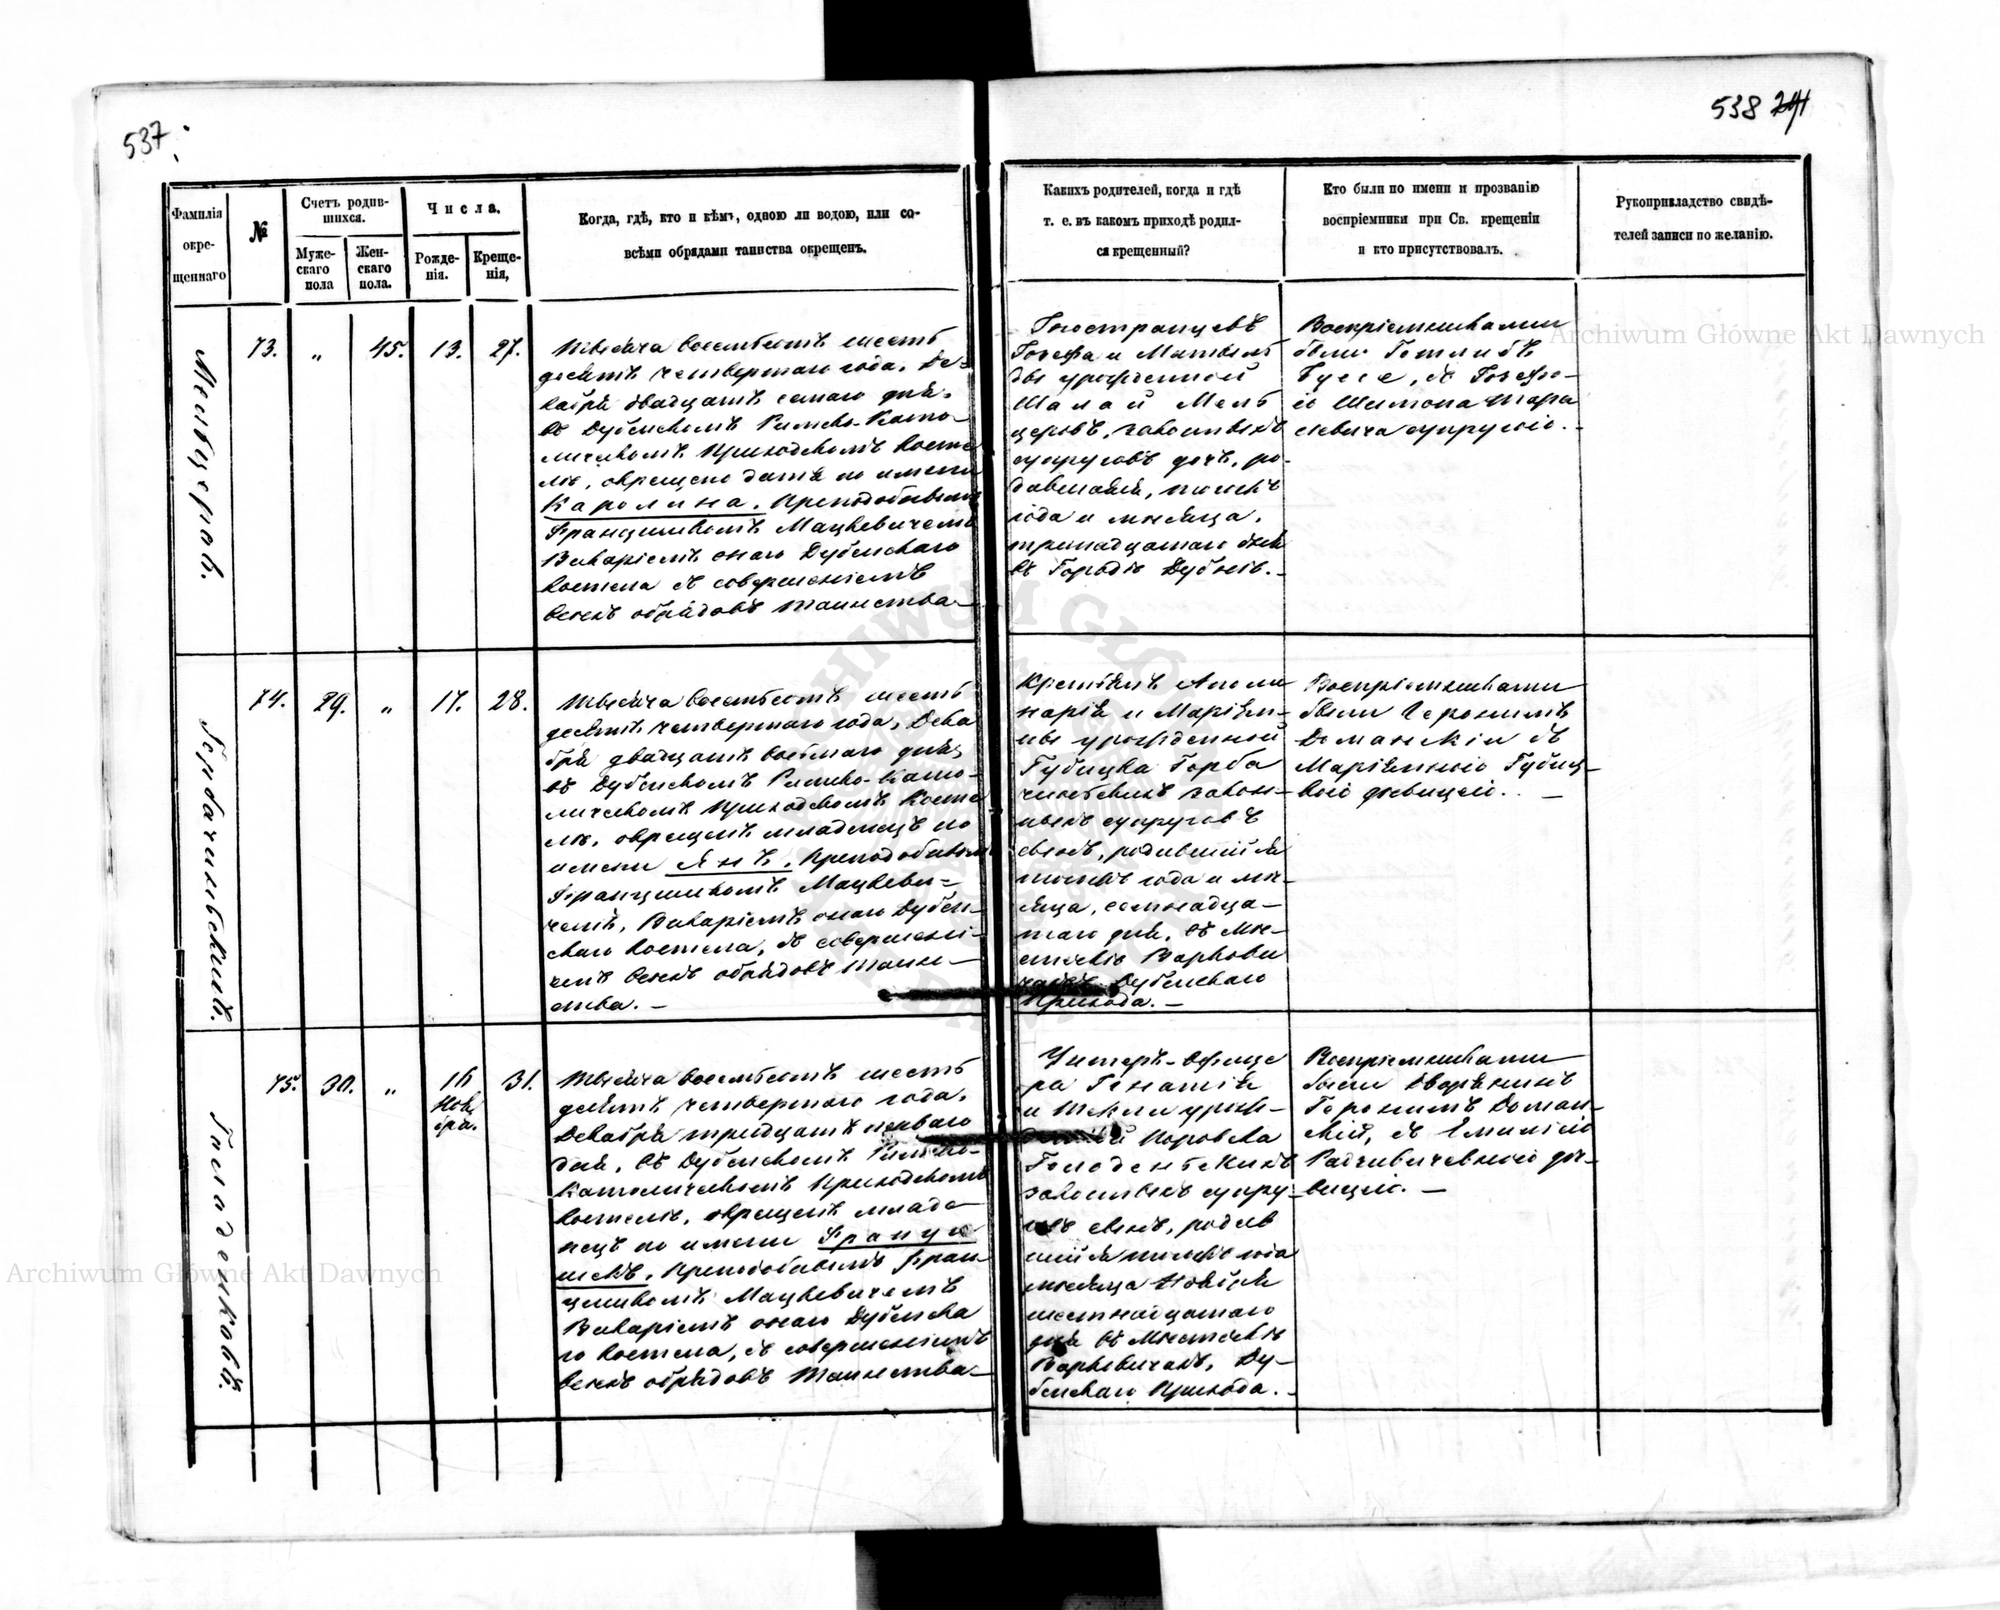 537
538
Фамилія
окре-
щеннаго
№
Счетъ родив-
шихся.
Муже-
скаго
пола
Жен-
скаго
пола.
Числа.
Рожде-
нія.
Креще-
нія,
Когда, гдѣ, кто и кѣмъ, одною ли водою, или со-
всѣми обрядами таинства окрещенъ.
Какихъ родителей, когда и гдѣ
т. е. въ какомъ приходѣ родил-
ся крещенный?
Кто были по имени и прозванію
воспріемники при Св. крещеніи
и кто присутствовалъ.
Рукоприкладство свидѣ-
телей записи по желанію.
73.
„
45.
13.
27.
Тысяча восемьсотъ шесть
десятъ четвертаго года, Де-
кабря двадцать семаго дня,
въ Дубенскомъ Римско-Като-
лическомъ Приходскомъ Косте
лѣ, окрещено дитя по имени
Каролина, Преподобнымъ
Францишкомъ Мацкевичемъ
Викаріемъ онаго Дубенскаго
Костела съ совершеніемъ
всехъ обрядовъ Таинства
Иностранцевъ
Іозефа и Матиль
ды урожденной
церовъ, законныхъ
супруговъ дочь, ро-
дившаяся, тогожъ
года и мѣсяца,
тринадцатаго дня
въ Городѣ Дубнѣ.
Воспріемниками
были Готлибъ
Буссе, съ Іозефо-
ю Шимона Тара
севича супругою.
74.
29.
„
17.
28.
Тысяча восемьсотъ шесть
десятъ четвертаго года, Дека
бря двадцать восьмаго дня,
въ Дубенскомъ Римско-Като-
лическомъ Приходскомъ Косте
лѣ, окрещенъ младенецъ по
имени Янъ, Преподобнымъ
Францишкомъ Мацкеви-
чемъ, Викаріемъ онаго Дубен-
скаго Костела, съ совершені-
емъ всехъ обрядовъ Таин-
ства.
Крестьянъ Аполи
нарія и Маріян-
ны урожденной
Губицка Горба
чинскихъ закон-
ныхъ супруговъ
сынъ, родившійся
тогожъ года и мѣ-
сяца, семнадца-
таго дня, въ Мѣ-
стечкѣ Варкови
чахъ Дубенскаго
Прихода.
Воспріемниками
были Геронимъ
Доманскій съ
Маріянною Губиц-
кою дѣвицею.
75.
30.
„
16
Нояб
бра.
31.
Тысяча восемьсотъ шесть
десятъ четвертаго года,
Декабря тридцать перваго
дня, въ Дубенскомъ Римско-
Католическомъ Приходскомъ
Костелѣ, окрещенъ младе
нецъ по имени Франци
шекъ, Преподобнымъ Фран
цишкомъ Мацкевичемъ
Викаріемъ онаго Дубенска
го Костела, съ совершеніемъ
всехъ обрядовъ Таинства
Унтеръ-Офице
ра Игнатія
и Теклы урож-
законныхъ супру-
говъ сынъ, родив
шійся тогожъ года
мѣсяца Ноября
шестнадцатаго
дня въ Мѣстечкѣ
Варковичахъ, Ду-
бенскаго Прихода.
Воспріемниками
были Дворянинъ
Геронимъ Доман-
скій, съ Емилією
вицею.
Archiwum Główne Akt Dawnych
Archiwum Główne Akt Dawnych